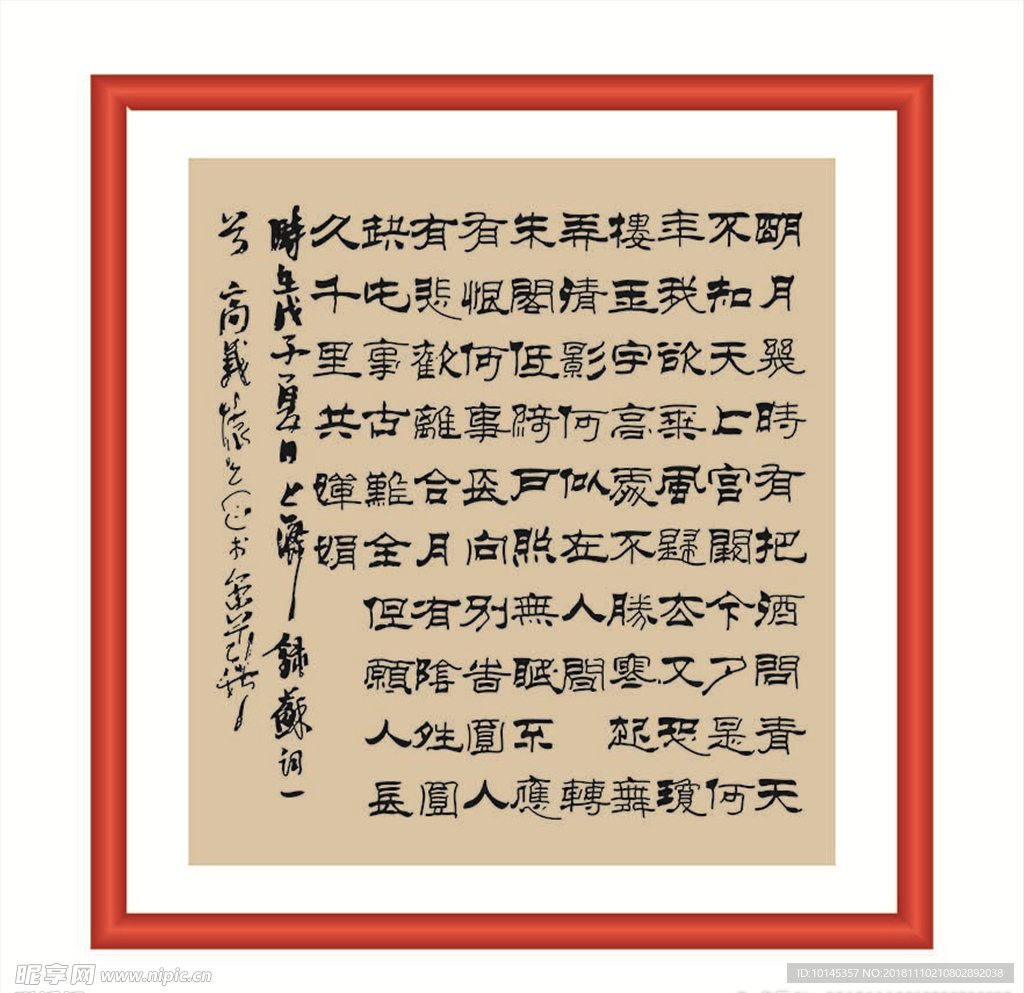 明月幾時有把酒問青天
不知天上宮闕今夕是何
年我欲乘風歸去又恐瓊
樓玉宇高處不勝寒起舞
弄清影何似在人間 轉
朱閣低綺戶照無眠不應
有恨何事長向別旹圓人
有悲歡離合月有陰夝圓
缺此事古難全但願人長
久千里共嬋娟
時在戊子夏日上海錄蘇詞一
首 高義
昵享网 www.nipic.cn
ID:10145357 NO:20181110210802892038